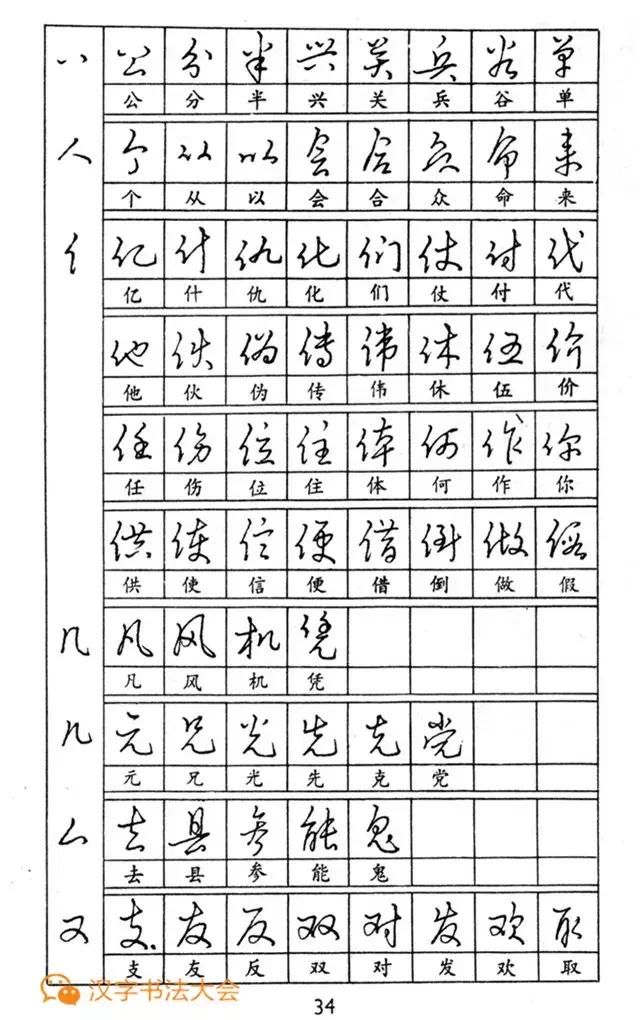 丷 公 分 半 兴 关 兵 谷 单
公 分 半 兴 关 兵 谷 单
人 个 从 以 会 合 众 命 来
个 从 以 会 合 众 命 来
亻 亿 什 仇 化 们 仗 付 代
亿 什 仇 化 们 仗 付 代
他 伙 伪 传 伟 休 伍 价
他 伙 伪 传 伟 休 伍 价
任 伤 位 住 体 何 作 你
任 伤 位 住 体 何 作 你
供 使 信 便 借 倒 做 假
供 使 信 便 借 倒 做 假
几 凡 风 机 凭
凡 风 机 凭
儿 元 兄 光 先 克 党
元 兄 光 先 克 党
厶 去 县 参 能 鬼
去 县 参 能 鬼
又 支 友 反 双 对 发 欢 取
支 友 反 双 对 发 欢 取
汉字书法大会
34